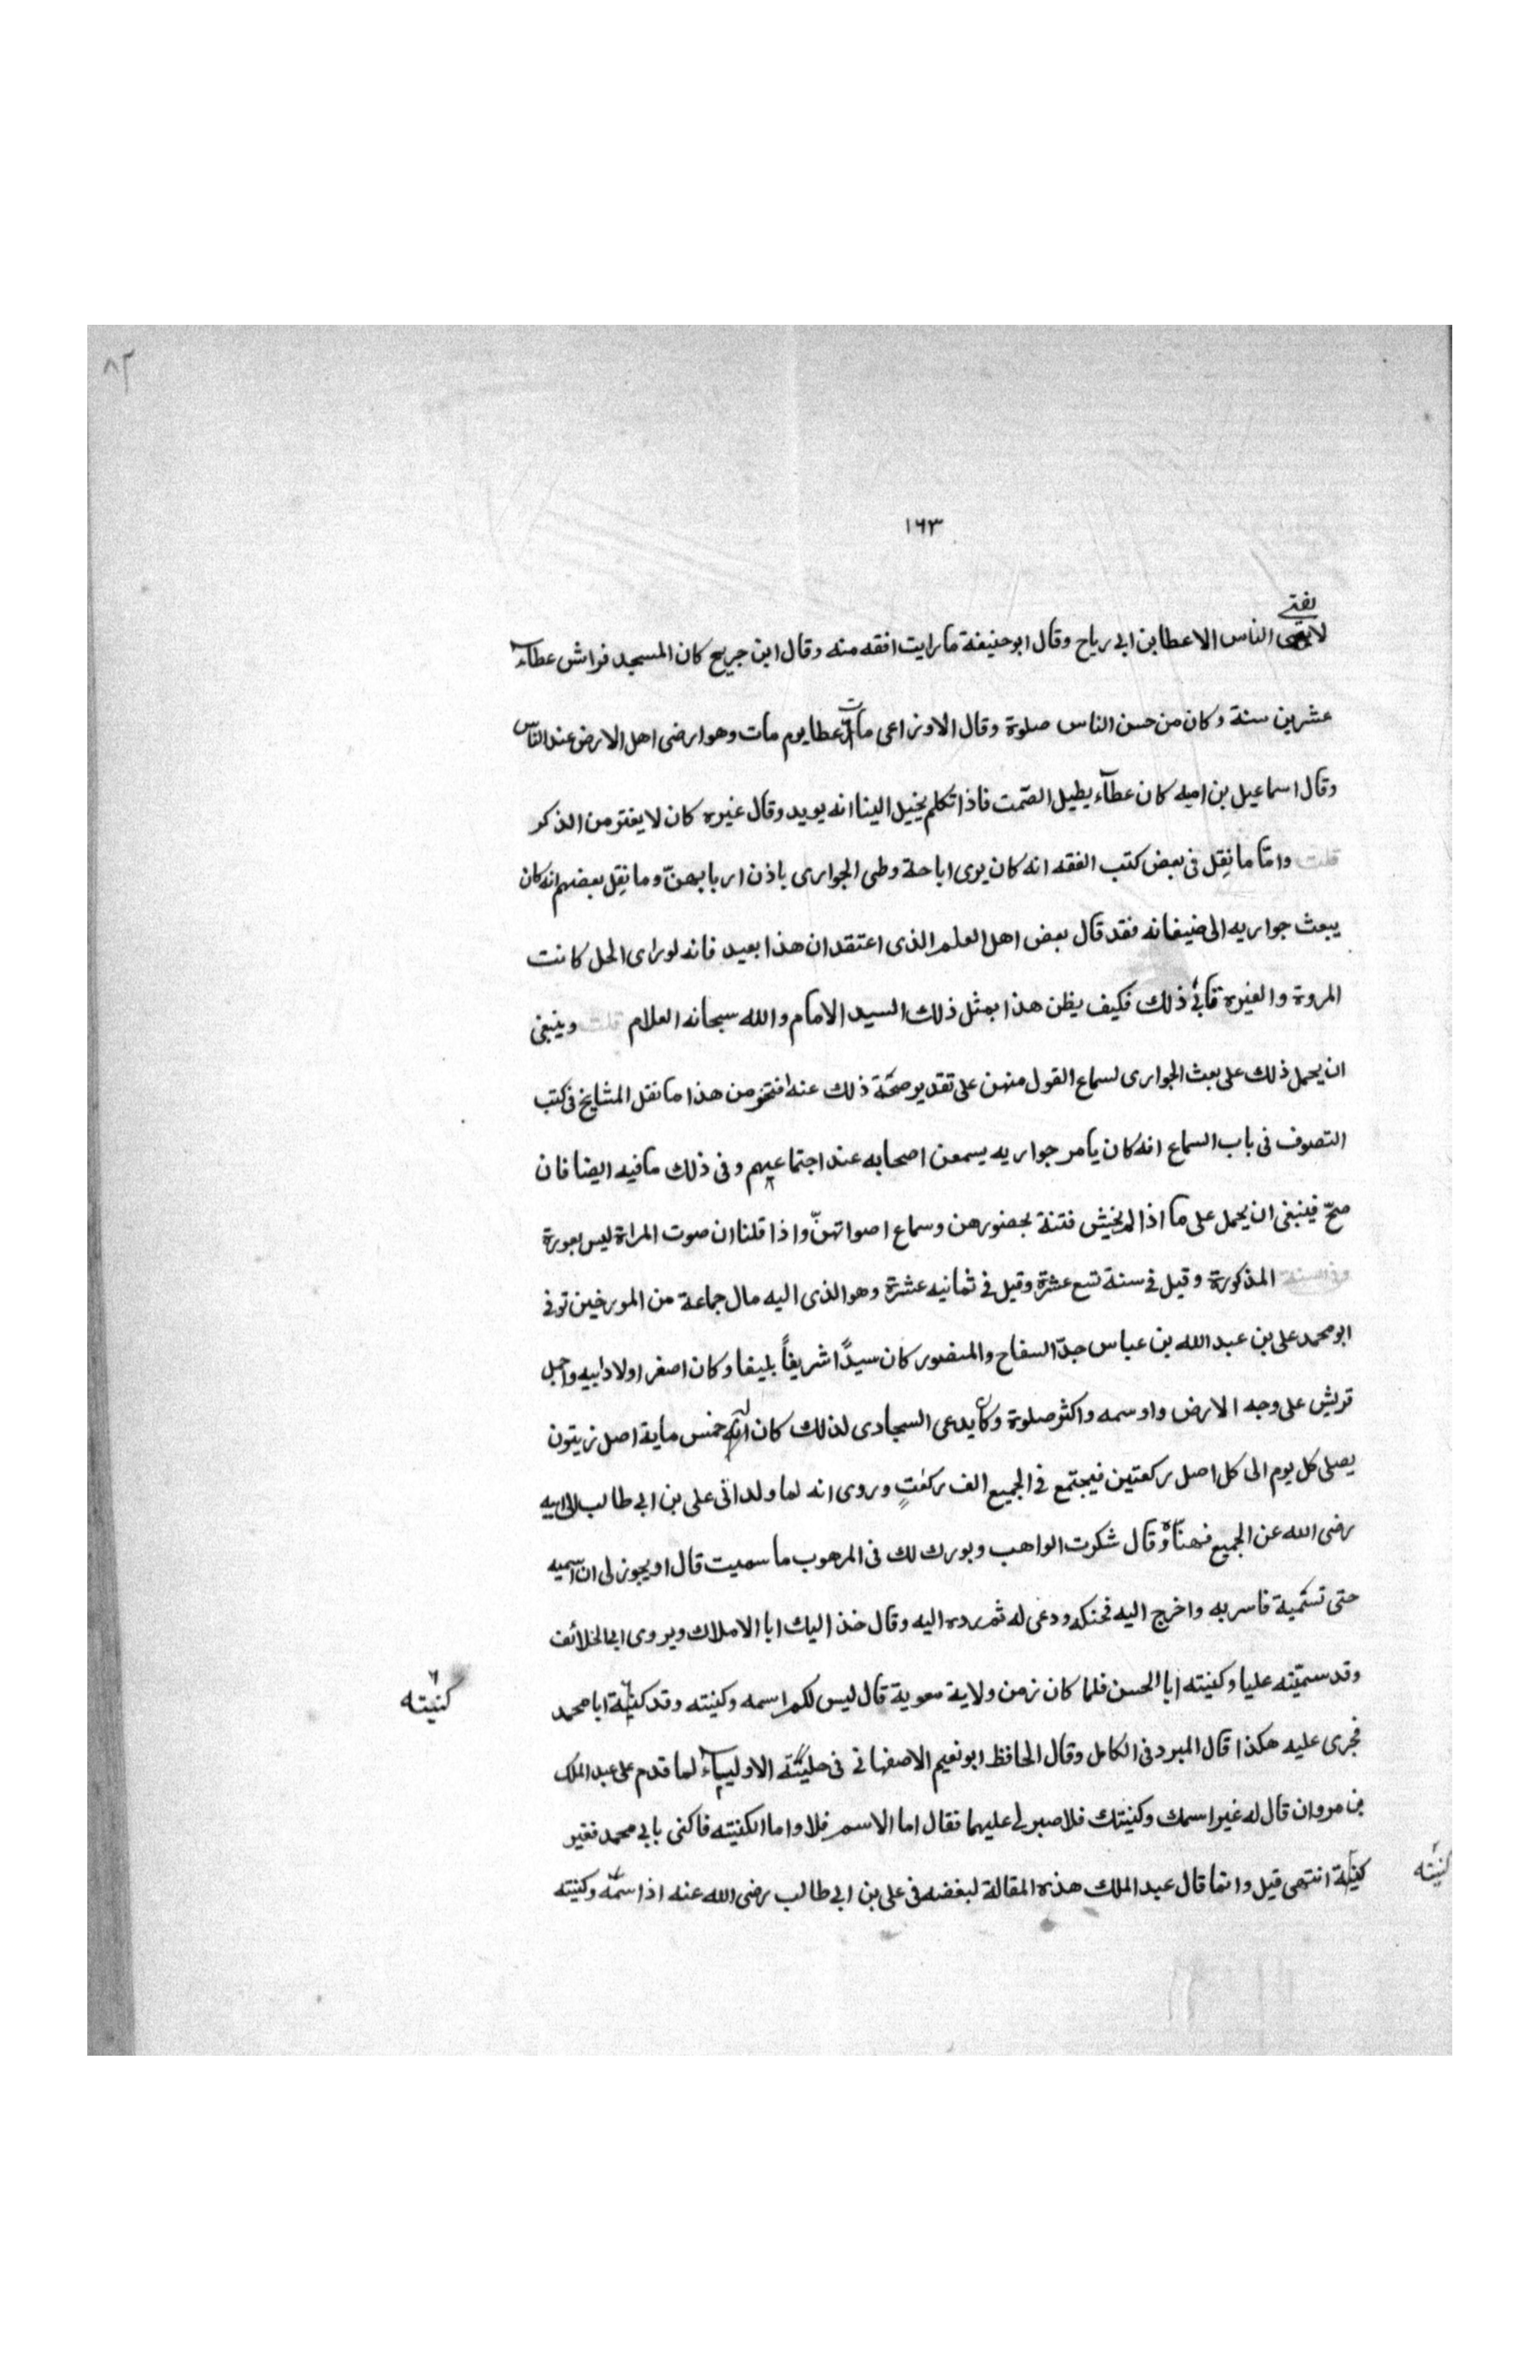 ٨٢
١٦٣
يفتى
لا الناس الا عطا بن ابى رياح وقال ابو حنيفة ما رايت افقه منه وقال ابن جريح كان المسجد فراش عطآء
عشرين سنة وكان من حسن الناس صلوة وقال الاوزاعى مات عطا يوم مات وهو ارضى اهل الارض عند الناس
وقال اسماعيل بن اميه كان عطآء يطيل الصّمت فاذا تكلم يخيل الينا انه يويد وقال غيره كان لا يفتر من الذكر
قلت وامّا ما نقِل فى بعض كتب الفقه انه كان يرى اباحة وطى الجوارى باذن اربابهنّ وما نقِل بعضهم انه كان
يبعث جواريه الى ضيفانه فقد قال بعض اهل العلم الذى اعتقد ان هذا بعيد فانه لو راى الحل كانت
المروة والغيرة تابى ذلك فكيف يظن هذا بمثل ذلك السيد الامام والله سبحانه العلام قلت وينبغى
ان يحمل ذلك على بعث الجوارى لسماع القول منهن على تقدير صحّة ذلك عنه من هذا ما نقل المشايخ فى كتب
التصوف فى باب السماع انه كان يامر جواريه يسمعن اصحابه عند اجتماعهم وفى ذلك ما فيه ايضا فان
صحّ فينبغى ان يحمل على ما اذا لم يخش فتنة بحضورهن وسماع اصواتهنّ واذا قلنا ان صوت المراة ليس بعورة
وفى السنة المذكورة وقيل فى سنة تسع عشرة وقيل فى ثمانيه عشرة وهو الذى اليه مال جماعة من المورخين توفى
ابو محمد على بن عبد الله بن عباس جدّ السفاح والمنصور كان سيدًا شريفاً بليغا وكان اصغر اولاد ابيه واجمل
قريش على وجه الارض واوسمه واكثر صلوة وكان يدعى السجادى لذلك كان له خمس ماية اصل زيتون
يصلى كل يوم الى كل اصل ركعتين فيجتمع فى الجميع الف ركعتٍ وروى انه لما ولد اتى على بن ابى طالب الى ابيه
رضى الله عن الجميع فهنّاه وقال شكرت الواهب وبورك لك فى المرهوب ما سميت قال او يجوز لى ان اسميه
حتى تسمية فامر به واخرج اليه فحنكه ودعى له ثم رده اليه وقال خذ اليك ابا الاملاك ويروى ابا الخلائف
وقد سمّيته عليا وكنيته ابا الحسن فلما كان زمن ولاية معوية قال ليس لكم اسمه وكنيته وقد كنيته ابا محمد
كنيته
فجرى عليه هكذا قال المبرد فى الكامل وقال الحافظ ابو نعيم الاصفهانى فى حلية الاوليآء لما قدم على عبد الملك
بن مروان قال له غير اسمك وكنيتك فلا صبر لى عليهما فقال اما الاسم فلا واما الكنيته فاكنى بابى محمد فغير
كنيته
كنيته انتهى قيل وانما قال عبد الملك هذه المقالة لبغضه فى على بن ابى طالب رضى الله عنه اذا سمّه وكنيته